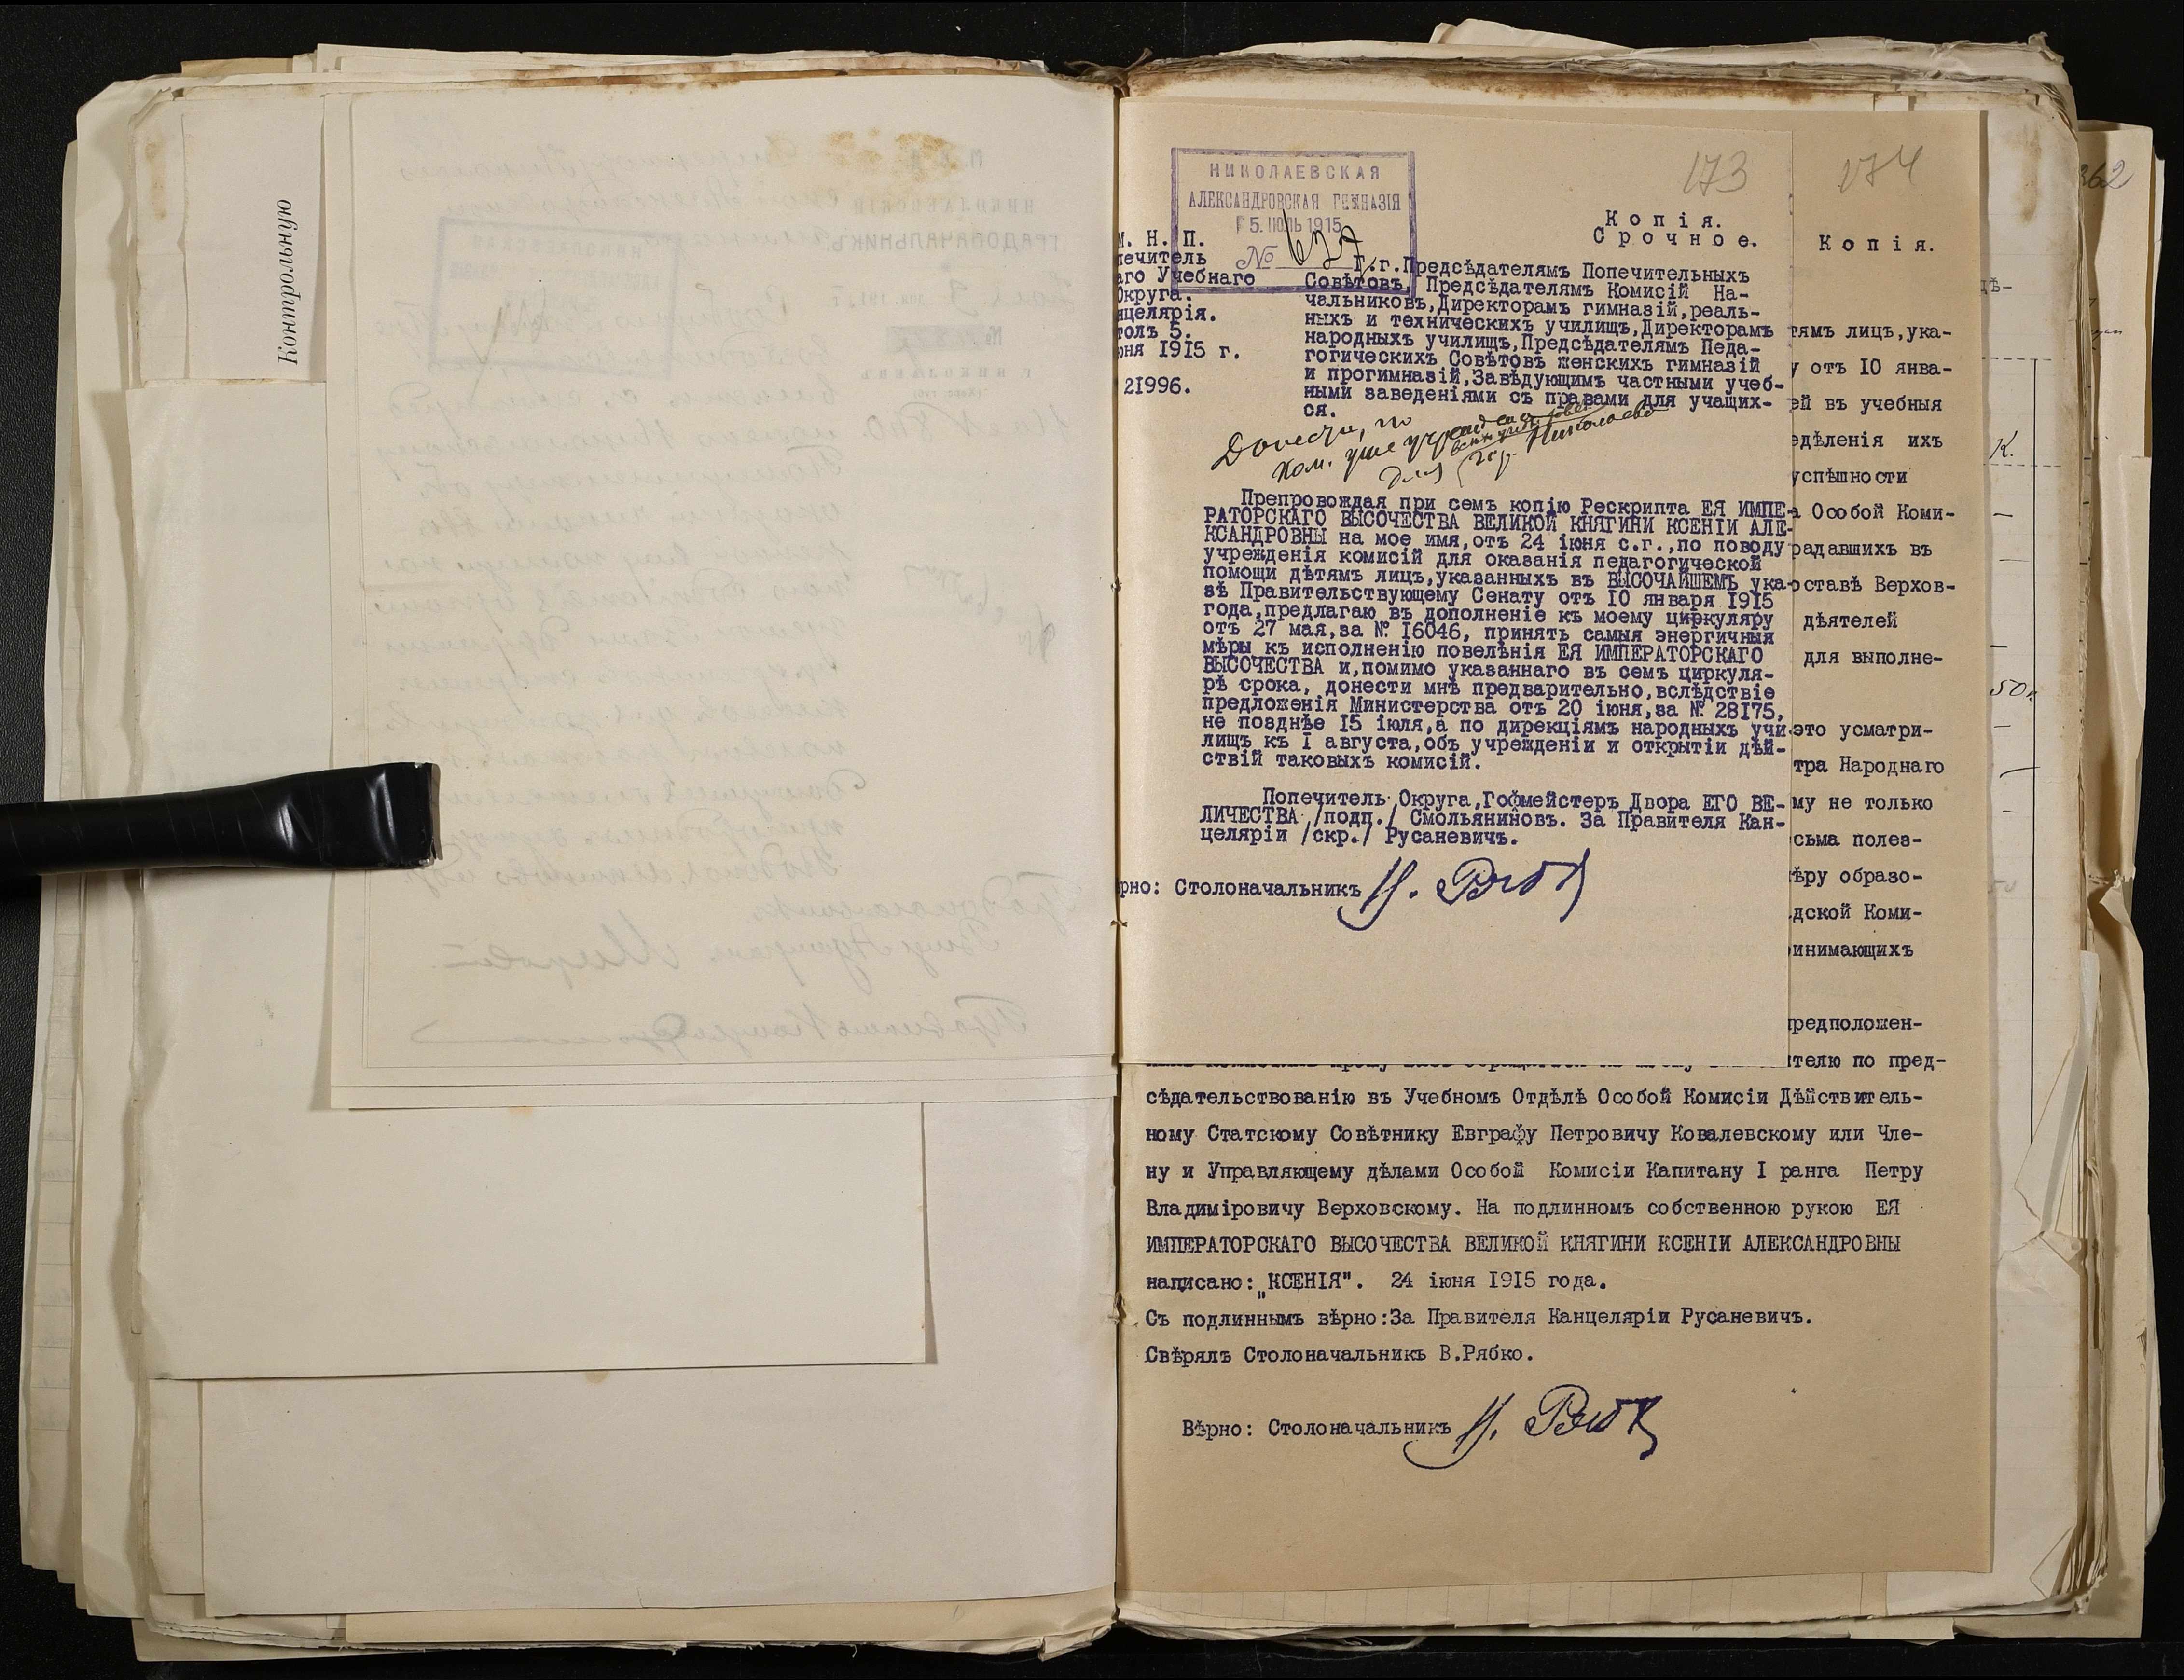 Контрольную
НИКОЛАЕВСКАЯ
АЛЕКСАНДРОВСКАЯ ГИМНАЗІЯ
5. ІЮЛЬ 1915
№
173
174
362
Копія.
Срочное.
М. Н. П.
печитель
аго Учебнаго
Округа.
нцелярія.
толъ 5.
юня 1915 г.
21996.
Г.г.Предсѣдателямъ Попечительныхъ
Совѣтовъ, Предсѣдателямъ Комисій На-
чальниковъ,Директорамъ гимназій,реаль-
ныхъ и техническихъ училищъ,Директорамъ
народныхъ училищъ,Предсѣдателямъ Педа-
гогическихъ Совѣтовъ женскихъ гимназій
и прогимназій,Завѣдующимъ частными учеб-
ными заведеніями съ правами для учащих-
ся.
Препровождая при семъ копію Рескрипта ЕЯ ИМПЕ-
РАТОРСКАГО ВЫСОЧЕСТВА ВЕЛИКОЙ КНЯГИНИ КСЕНІИ АЛЕ-
КСАНДРОВНЫ на мое имя,отъ 24 іюня с.г.,по поводу
учрежденія комисій для оказанія педагогической
помощи дѣтямъ лицъ,указанныхъ въ ВЫСОЧАЙШЕМЪ ука-
зѣ Правительствующему Сенату отъ 10 января 1915
года,предлагаю въ дополненіе къ моему циркуляру
отъ 27 мая,за № 16046, принять самыя энергичныя
мѣры къ исполненію повелѣнія ЕЯ ИМПЕРАТОРСКАГО
ВЫСОЧЕСТВА и,помимо указаннаго въ семъ циркуля-
рѣ срока, донести мнѣ предварительно,вслѣдствіе
предложенія Министерства отъ 20 іюня,за № 28175,
не позднѣе 15 іюля,а по дирекціямъ народныхъ учи-
лищъ къ I августа,объ учрежденіи и открытіи дѣй-
ствій таковыхъ комисій.
Попечитель Округа,Гофмейстеръ Двора ЕГО ВЕ-
ЛИЧЕСТВА /подп./ Смольяниновъ. За Правителя Кан-
целяріи /скр./ Русаневичъ.
рно: Столоначальникъ
Копія.
тямъ лицъ,ука-
у отъ 10 янва-
ей въ учебныя
едѣленія ихъ
успѣшности
а Особой Коми-
радавшихъ въ
оставѣ Верхов-
дѣятелей
для выполне-
это усматри-
тра Народнаго
му не только
сьма полез-
ѣру образо-
дской Коми-
инимающихъ
редположен-
телю по пред-
сѣдательствованію въ Учебномъ Отдѣлѣ Особой Комисіи Дѣйствитель-
ному Статскому Совѣтнику Евграфу Петровичу Ковалевскому или Чле-
ну и Управляющему дѣлами Особой Комисіи Капитану I ранга Петру
Владиміровичу Верховскому. На подлинномъ собственною рукою ЕЯ
ИМПЕРАТОРСКАГО ВЫСОЧЕСТВА ВЕЛИКОЙ КНЯГИНИ КСЕНІИ АЛЕКСАНДРОВНЫ
написано: „КСЕНІЯ". 24 іюня 1915 года.
Съ подлиннымъ вѣрно:За Правителя Канцеляріи Русаневичъ.
Свѣрялъ Столоначальникъ В.Рябко.
Вѣрно: Столоначальникъ
К.
50